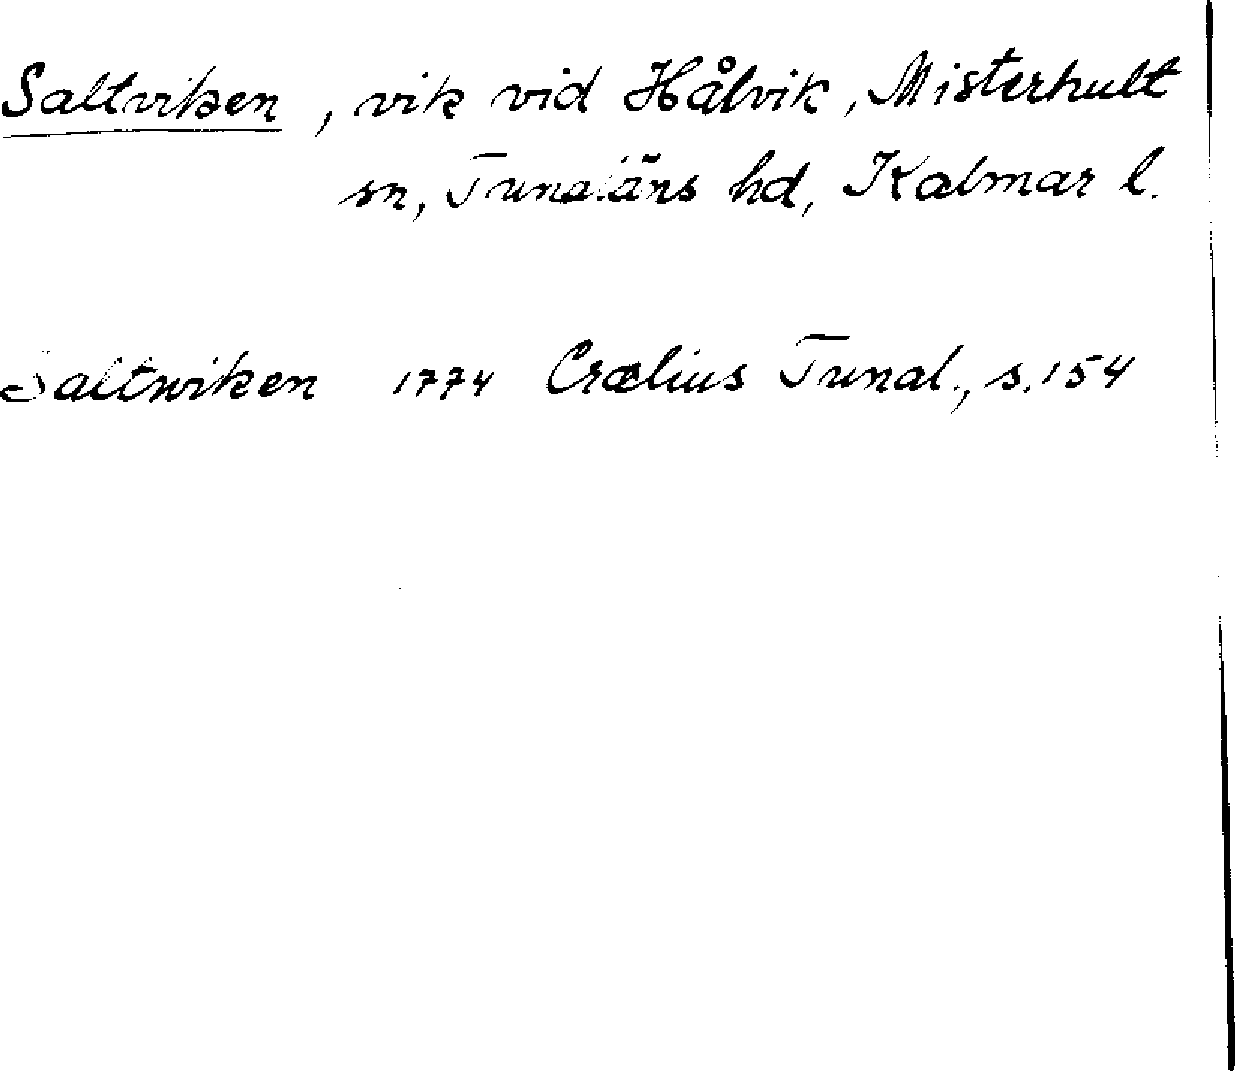 Saltviken, vik vid Hålvik, Misterhult
sn, Tunaläns hd, Kalmar l.
Saltwiken 1774 Crælius Tunal., s. 154